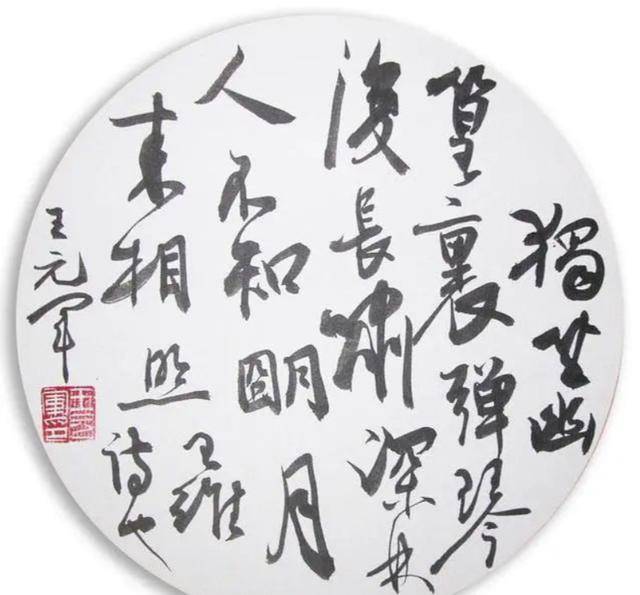 獨坐幽
篁裏弹琴
復長嘯深林
人不知明月
来相照
王維
詩也
王元軍